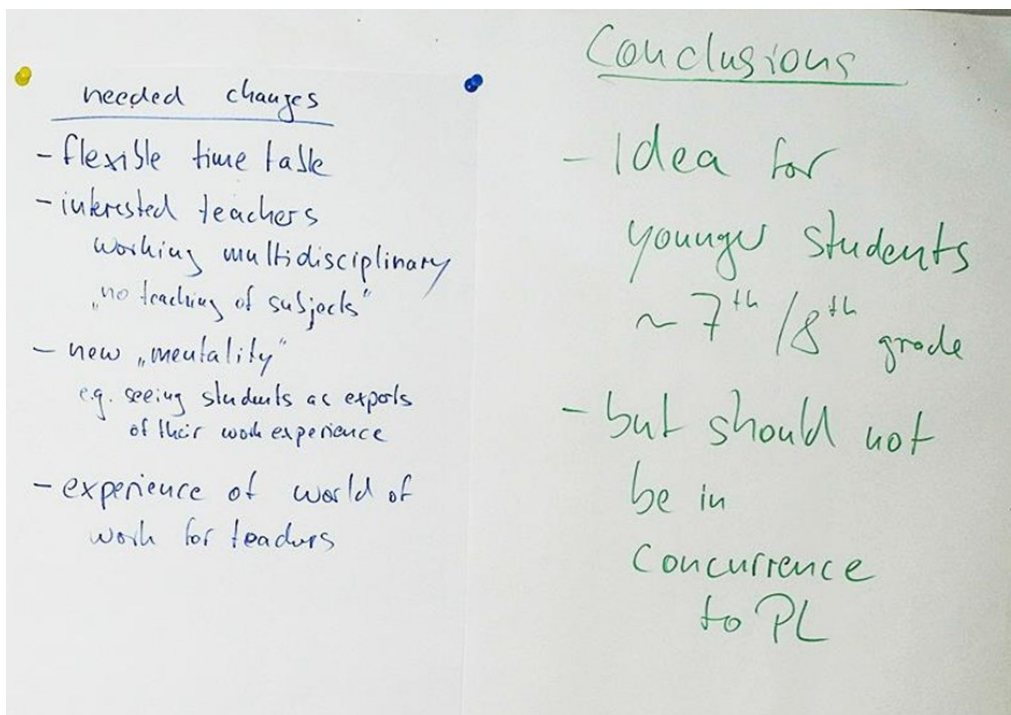 needed changes
- flexible time table
- interested teachers
working multidisciplinary
„no teaching of subjects"
- new „mentality"
e.g. seeing students as experts
of their work experience
- experience of world of
work for teachers
Conclusions
- Idea for
younger students
~ 7th / 8th grade
- but should not
be in
concurrence
to PL